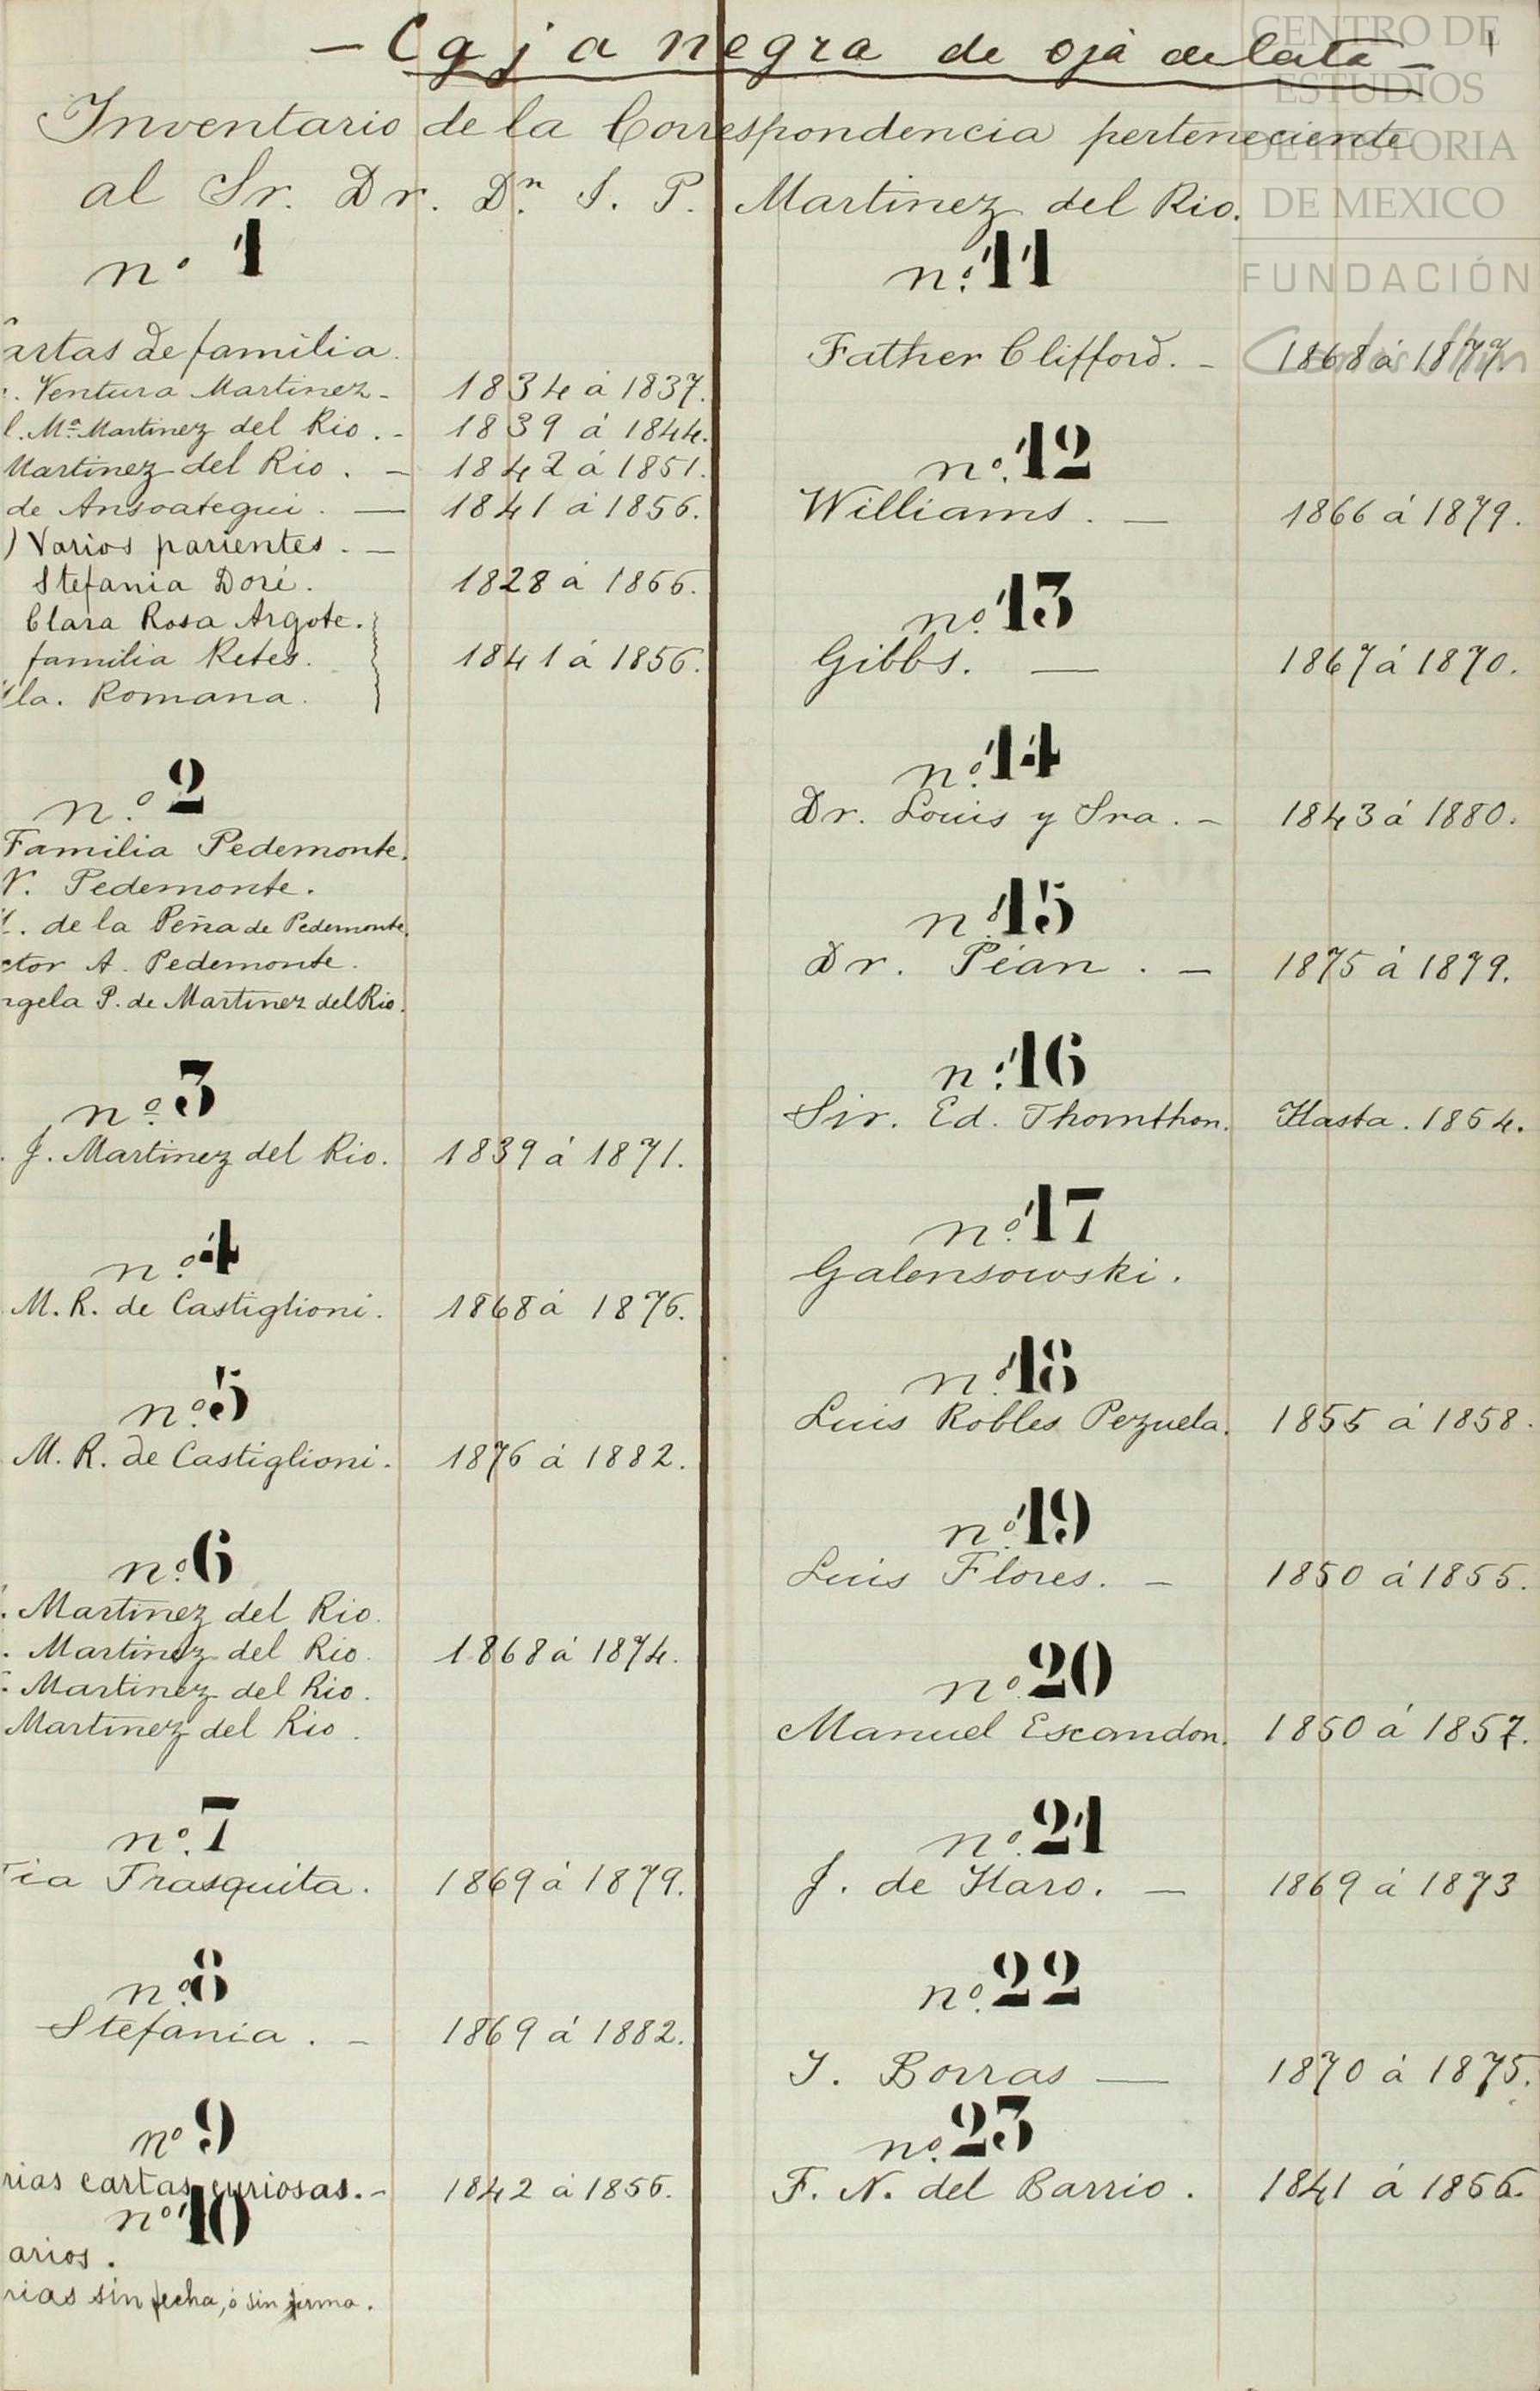 — Caja negra de oja de lata —
Inventario de la Correspondencia perteneciente
al Sr. Dr. Dn. S. P. Martinez del Rio.
nº 1
artas de familia.
. Ventura Martinez - 1834 á 1837.
l. Mª Martinez del Rio. - 1839 á 1844.
Martinez del Rio. - 1842 á 1851.
de Ansoategui. — 1841 á 1856.
) Varios parientes. —
Stefania Doré. 1828 á 1866.
Clara Rosa Argote.
familia Retes. 1841 á 1856.
la. Romana.
nº 2
Familia Pedemonte.
V. Pedemonte.
. de la Peña de Pedemonte.
ctor A. Pedemonte.
ngela P. de Martinez del Rio.
nº 3
. J. Martinez del Rio. 1839 á 1871.
nº 4
M. R. de Castiglioni. 1868 á 1876.
nº 5
M. R. de Castiglioni. 1876 á 1882.
nº 6
. Martinez del Rio.
. Martinez del Rio. 1868 á 1874.
. Martinez del Rio.
Martinez del Rio.
nº 7
ia Frasquita. 1869 á 1879.
nº 8
Stefania. - 1869 á 1882.
nº 9
rias cartas curiosas. - 1842 á 1856.
nº 10
arios.
rias sin fecha, ó sin firma.
nº 11
Father Clifford. - 1868 á 1877.
nº 12
Williams. — 1866 á 1879.
nº 13
Gibbs. — 1867 á 1870.
nº 14
Dr. Louis y Sra. - 1843 á 1880.
nº 15
Dr. Péan. — 1875 á 1879.
nº 16
Sir. Ed. Thornthon. Hasta. 1864.
nº 17
Galensowski.
nº 18
Luis Robles Pezuela. 1855 á 1858.
nº 19
Luis Flores. - 1850 á 1855.
nº 20
Manuel Escandon. 1850 á 1857.
nº 21
J. de Haro. — 1869 á 1873
nº 22
J. Borras — 1870 á 1875.
nº 23
F. N. del Barrio. 1841 á 1856.
1
CENTRO DE
ESTUDIOS
DE HISTORIA
DE MEXICO
FUNDACIÓN
Carlos Slim